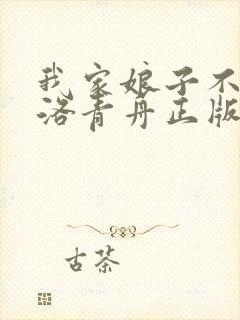 我家娘子不
洛青丹正版
古茶